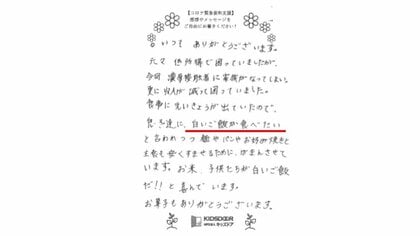 【コロナ緊急食料支援】
感想やメッセージを
ご自由にお書きください!
いつも ありがとうございます。
元々 低所得で困っていましたが、
今回 濃厚接触者に家族がなってしまい、
更に収入が減って困っていました。
食事にえいきょうが出ていたので、
息子達に、白いご飯が食べたい
と言われつつ麺やパンやお好み焼きと
主食も安くすませるために、がまんさせて
います。お米、子供たちが白いご飯
だ!!と喜んでいます。
お菓子もありがとうございます。
KIDSDOOR
NPO法人 キッズドア